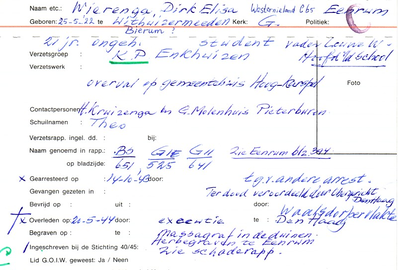 Naam etc.: Nierenga, Dirk Elisa Westernieland C65 Eenrum
Geboren: 25-5-22 te Uithuizermeeden Kerk: G. Politiek:
Bierum?
21 jr. ongeh. student vader Hoofd Ulschool
Verzetsgroep : K.P. Enkhuizen
Verzetswerk :
overval op gemeentehuis Foto
Contactpersonen H. Kruizenga en G. Molenhuis Pieterburen
Schuilnamen : Theo
Verzetsrapp. ingel. dd. : bij:
Naam genoemd in rapp.: BS GIE GII Zie Eenrum blz 344
op bladzijde: 651, 525 641
x Gearresteerd op : 14-10-43 door: t.g.v. andere arrest.
Gevangen gezeten in : Ter dood veroordeeld door
Bevrijd op : uit : door : Waalsdorpervlakte
Overleden op : 21-5-44 door : executie te : Den Haag
Begraven op : te : Massagraf in de duinen
Herbegraven te Eenrum
Ingeschreven bij de Stichting 40/45: Zie schaderapp.
Lid G.O.I.W. geweest: Ja / Neen